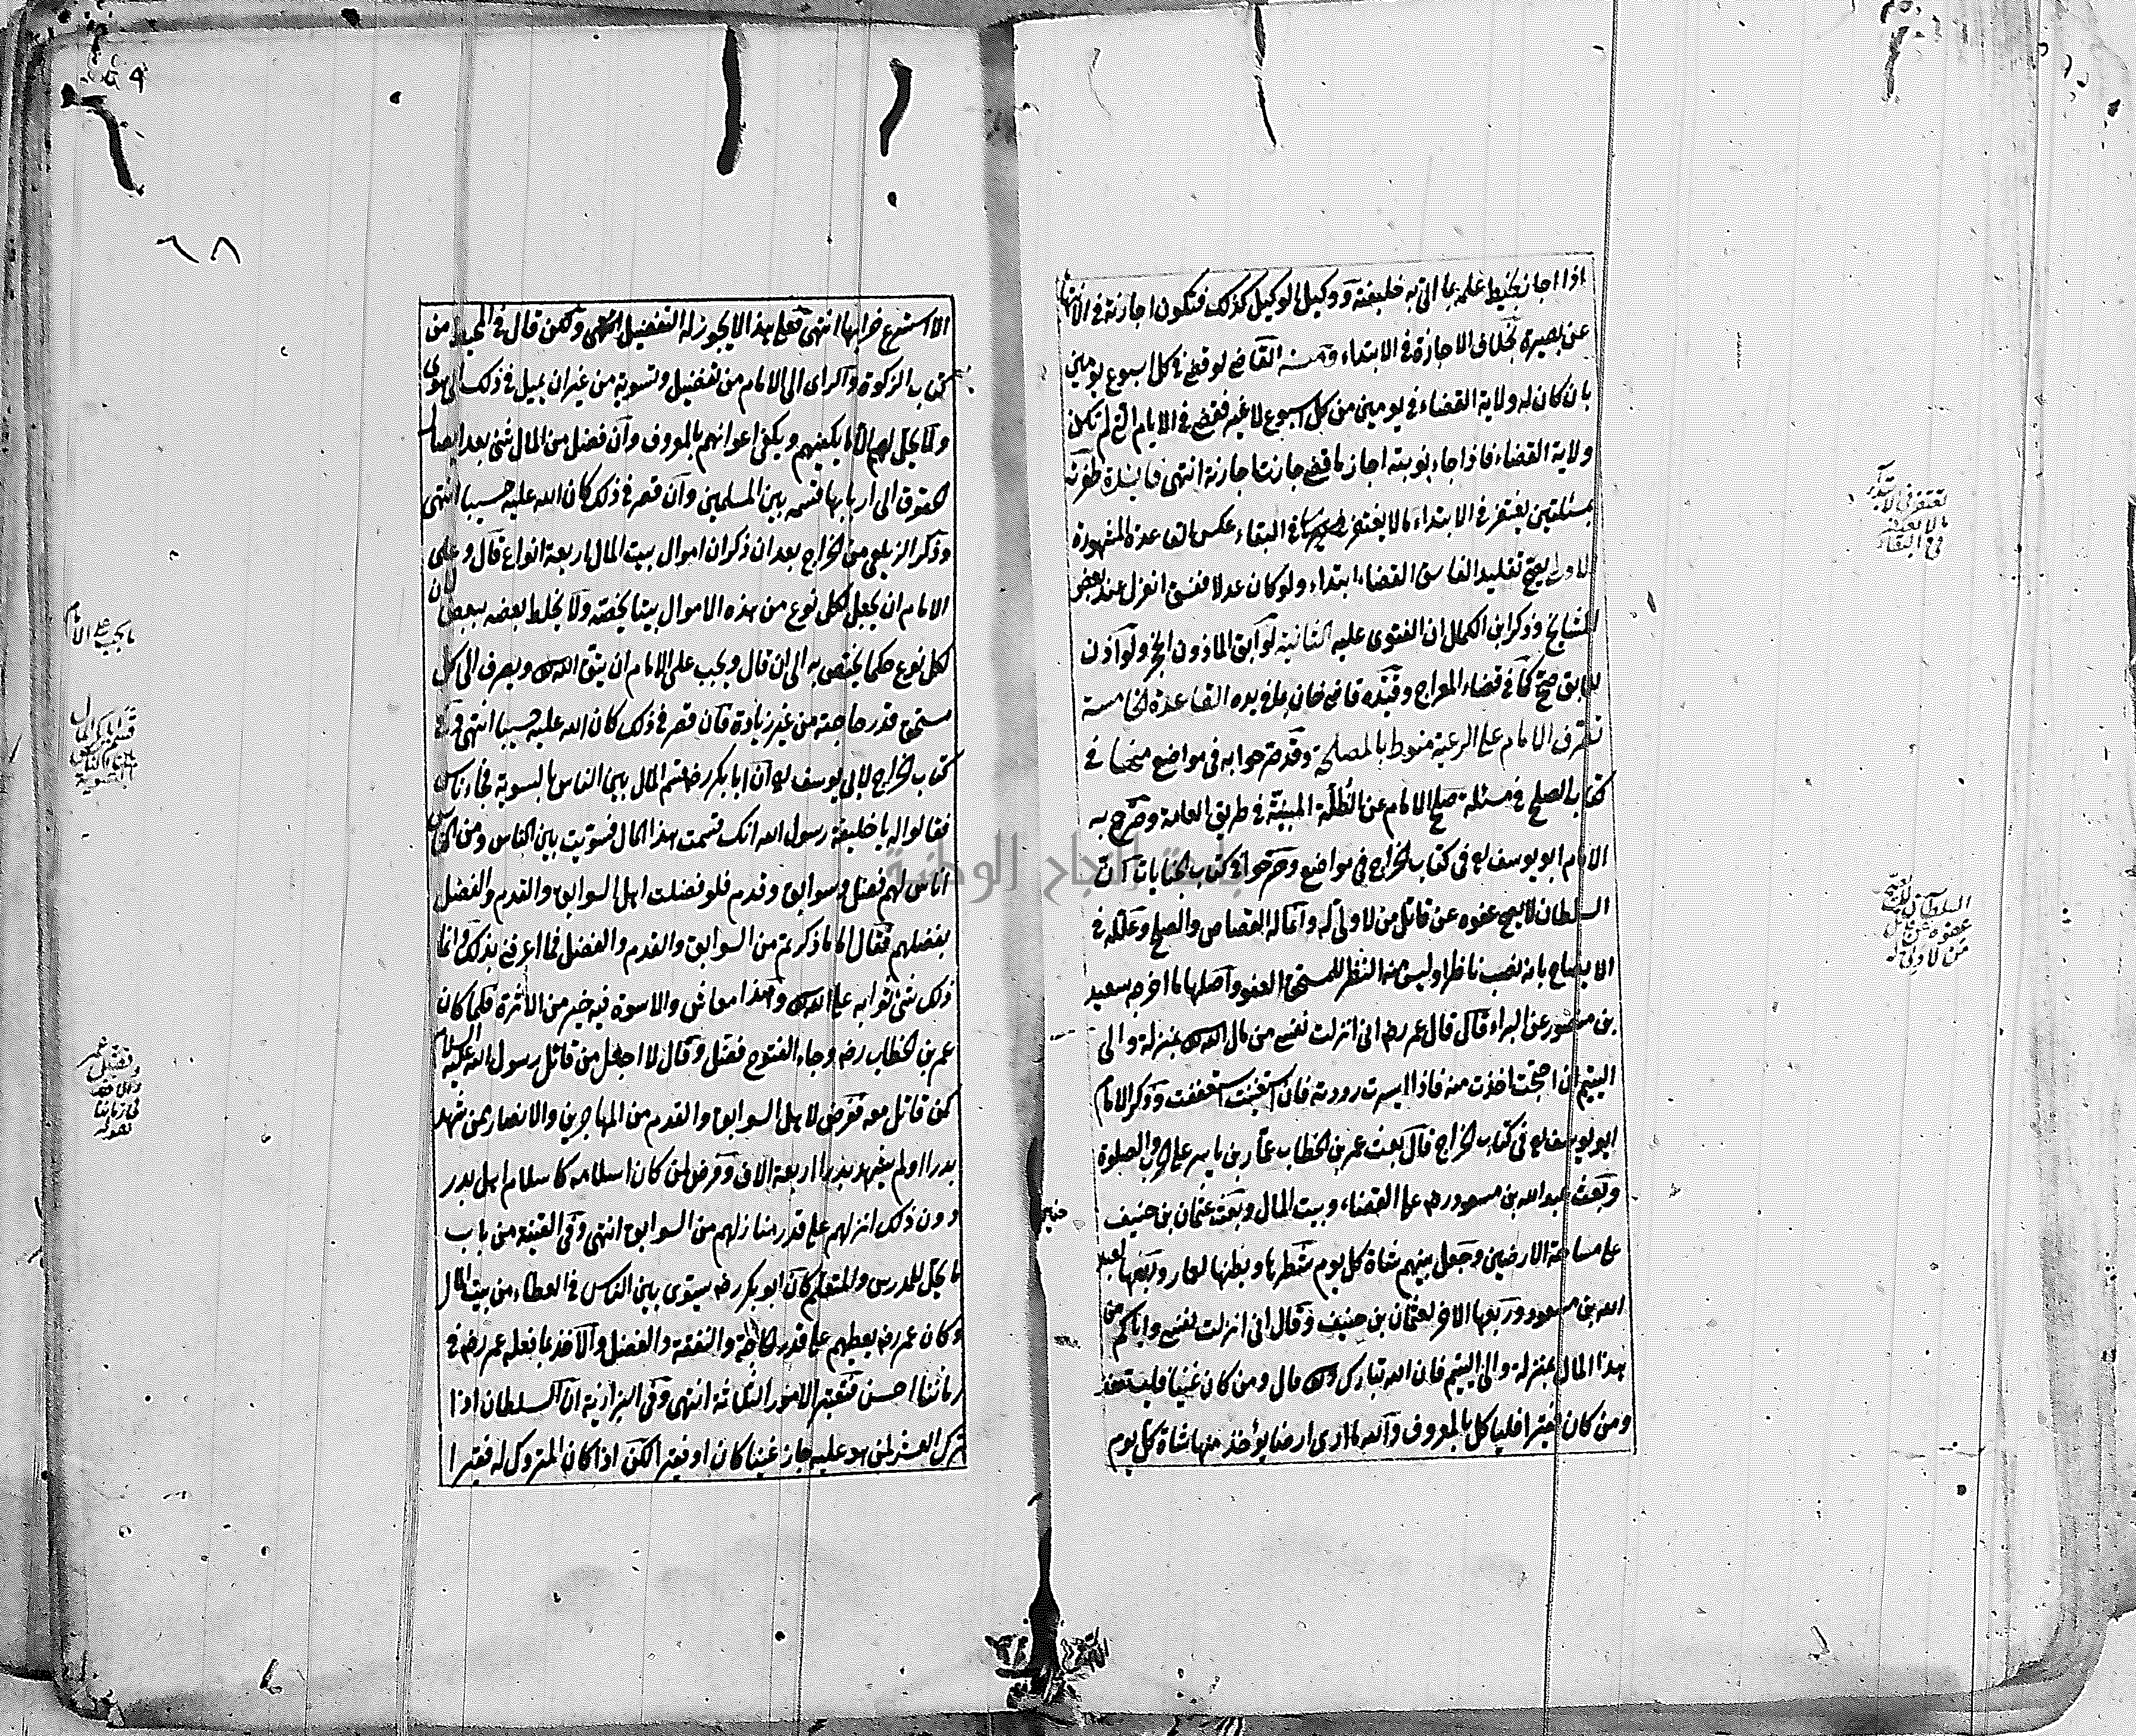 اذا اجاز يحيط علمه بما اتى به خليفته ووكيل الوكيل كذلك فتكون اجازته في الانتهاء
عن بصيرة بخلاف الاجازة في الابتداء القاضي لو قضى في كل اسبوع يومين
بان كان له ولاية القضاء في يومين من كل اسبوع لا غير فقضى في الايام التي لم تكن
ولاية القضاء فاذا جاء نوبته اجاز ما قضى جازت اجازته انتهى فائدة ظفرت
بمسئلتين يغتفر في الابتداء ما لا يغتفر في البقاء عكس القاعدة المشهورة
الاولى يصح تقليد الفاسق القضاء ابتداء ولو كان عدلا ففسق انعزل عند بعض
المشايخ وذكر ابن الكمال ان الفتوى عليه الثانية لو آبق الماذون انحجر ولو اذن
للآبق صح كما في قضاء المعراج وقيده قاضي خان بما في يده القاعدة الخامسة
تصرف الامام على الرعية منوط بالمصلحة وقد صرحوا به في مواضع منها في
كتاب الصلح في مسئلة صلح الامام عن الظلة المبنية في طريق العامة وصرح به
الامام ابو يوسف في كتاب الخراج في مواضع وصرحوا في كتاب الجنايات ان
السلطان لا يصح عفوه عن قاتل من لا ولي له وانما له القصاص والصلح وعلله في
الايضاح بانه نصب ناظرا وليس من النظر للمستحق العفو واصلها ما اخرجه سعيد
بن منصور عن البراء قال قال عمر رضه اني انزلت نفسي من مال الله بمنزلة والى
اليتيم ان احتجت اخذت منه فاذا ايسرت رددته فان استغنيت استعففت وذكر الامام
ابو يوسف في كتاب الخراج قال بعث عمر بن الخطاب عمار بن ياسر على الحرب والصلوة
وبعث عبد الله بن مسعود رضه على القضاء وبيت المال وبعث عثمان بن حنيف
على مساحة الارضين وجعل بينهم شاة كل يوم شطرها وبطنها لعمار وربعها لعبد
الله بن مسعود وربعها الاخر لعثمان بن حنيف وقال اني انزلت نفسي واياكم من
هذا المال بمنزلة والى اليتيم فان الله تبارك قال ومن كان غنيا فليستعفف
ومن كان فقيرا فلياكل بالمعروف والله ما ارى ارضا يؤخذ منها شاة كل يوم
تغتفر في الابتداء
ما لا يغتفر
في البقاء
السلطان لا يصح
عفوه عن قاتل
من لا ولي له
٦٨
الا استسرع خرابها انتهى فعلى هذا لا يجوز له التفضيل ولكن قال في المحيط من
كتاب الزكوة والراى الى الامام من تفضيل وتسوية من غير ان يميل في ذلك الى هوى
ولا يحل لهم الا ما يكفيهم ويكفي اعوانهم بالمعروف وان فضل من المال شئ بعد ايصال
الحقوق الى اربابها قسمه بين المسلمين وان قصر في ذلك كان الله عليه حسيبا انتهى
وذكر الزيلعي من الخراج بعد ان ذكر ان اموال بيت المال اربعة انواع قال وعلى
الامام ان يجعل لكل نوع من هذه الاموال بيتا يخصه ولا يخلط بعضه ببعض لان
لكل نوع حكما يختص به الى ان قال ويجب على الامام ان يتقي الله ويصرف الى كل
مستحق قدر حاجته من غير زيادة فان قصر في ذلك كان الله عليه حسيبا انتهى وفي
كتاب الخراج لابي يوسف ان ابا بكر رضه قسم المال بين الناس بالسوية فجاء ناس
فقالوا له يا خليفة رسول الله انك قسمت هذا المال فسويت بين الناس ومن الناس
اناس لهم فضل وسوابق وقدم فلو فضلت اهل السوابق والقدم والفضل
بفضلهم فقال اما ما ذكرتم من السوابق والقدم والفضل فما اعرفني بذلك وانما
ذلك شئ ثوابه على الله وهذا معاش والاسوة فيه خير من الاثرة فلما كان
عمر بن الخطاب رضه وجاء الفتوح فضل وقال لا اجعل من قاتل رسول الله عليه السلام
كمن قاتل معه ففرض لاهل السوابق والقدم من المهاجرين والانصار ممن شهد
بدرا او لم يشهد بدرا اربعة الاف وفرض لمن كان اسلامه كاسلام اهل بدر
دون ذلك انزلهم على قدر منازلهم من السوابق انتهى وفي القنية من باب
ما يحل للمدرس والمتعلم كان ابو بكر رضه يسوى بين الناس في العطاء من بيت المال
وكان عمر رضه يعطيهم على قدر الحاجة والفقه والفضل والاخذ بما فعله عمر رضه في
زماننا احسن فتعتبر الامور الثلاثة انتهى وفي البزازية ان السلطان اذا
ترك العشر لمن هو عليه جاز غنيا كان او فقيرا لكن اذا كان المتروك له فقيرا
ما يجب على الامام
قسم ابو بكر المال
بين الناس
بالسوية
وفضل عمر
في زماننا
جامعة النجاح الوطنية